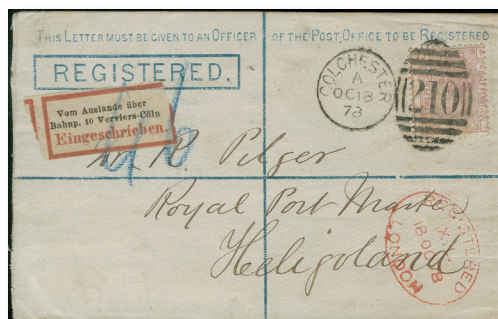 THIS LETTER MUST BE GIVEN TO AN OFFICER OF THE POST OFFICE TO BE REGISTERED
REGISTERED.
COLCHESTER
A
OC 18
78
210
Vom Auslande über
Bahnp. 10 Verviers-Cöln
Eingeschrieben.
R. Pilger
Royal Post Master
Heligoland
REGISTERED
18 OC 8
LONDON